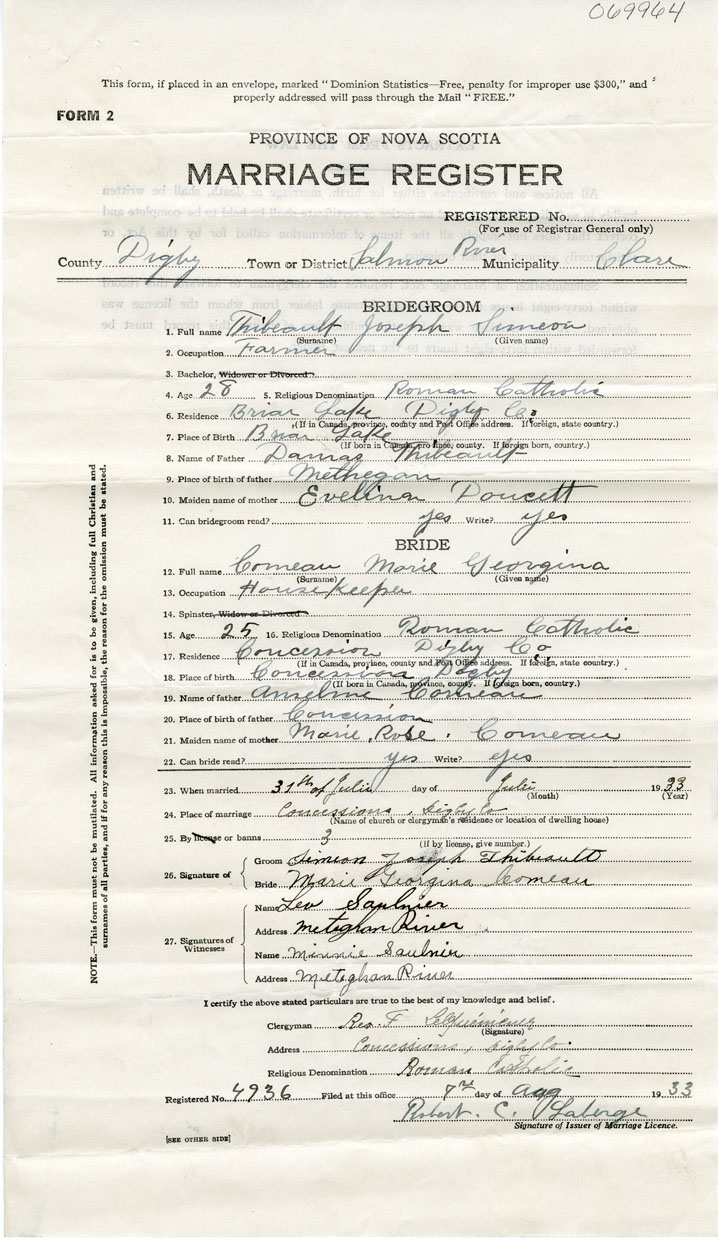 069964
This form, if placed in an envelope, marked "Dominion Statistics—Free, penalty for improper use $300," and
properly addressed will pass through the Mail "FREE."
FORM 2
PROVINCE OF NOVA SCOTIA
MARRIAGE REGISTER
REGISTERED No.
(For use of Registrar General only)
County Digby Town or District Salmon River Municipality Clare
BRIDEGROOM
1. Full name Thibeault Joseph Simeon
(Surname) (Given name)
2. Occupation Farmer
3. Bachelor, Widower or Divorced
4. Age 28 5. Religious Denomination Roman Catholic
6. Residence Briar Lake Digby Co
(If in Canada, province, county and Post Office address. If foreign, state country.)
7. Place of Birth Briar Lake
(If born in Canada, province, county. If foreign born, country.)
8. Name of Father Damas Thibeault
9. Place of birth of father Methegan
10. Maiden name of mother Evelina Doucett
11. Can bridegroom read? yes Write? yes
BRIDE
12. Full name Comeau Marie Georgina
(Surname) (Given name)
13. Occupation Housekeeper
14. Spinster, Widow or Divorced
15. Age 25 16. Religious Denomination Roman Catholic
17. Residence Concession Digby Co
(If in Canada, province, county and Post Office address. If foreign, state country.)
18. Place of birth Concession Digby
(If born in Canada, province, county. If foreign born, country.)
19. Name of father Anselme Comeau
20. Place of father Concession
21. Maiden name of mother Marie Rose Comeau
22. Can bride read? yes Write? yes
23. When married 31th of Julii day of Julii 1933
(Month) (Year)
24. Place of marriage Concessions, Digby Co
(Name of church or clergyman's residence or location of dwelling house)
25. By license or banns 3
(If by license, give number.)
26. Signature of
Groom Simeon Joseph Thibeault
Bride Marie Georgina Comeau
27. Signatures of Witnesses
Name Leo Saulnier
Address Meteghan River
Name Minnie Saulnier
Address Meteghan River
I certify the above stated particulars are true to the best of my knowledge and belief.
Clergyman Rev. F
(Signature)
Address Concessions, Digby Co.
Religious Denomination Roman Catholic
Registered No. 4936 Filed at this office 7 day of Aug 1933
Robert. C. Laberge
Signature of Issuer of Marriage Licence.
[SEE OTHER SIDE]
NOTE.—This form must not be mutilated. All information asked for is to be given, including full Christian and
surnames of all parties, and if for any reason this is impossible, the reason for the omission must be stated.